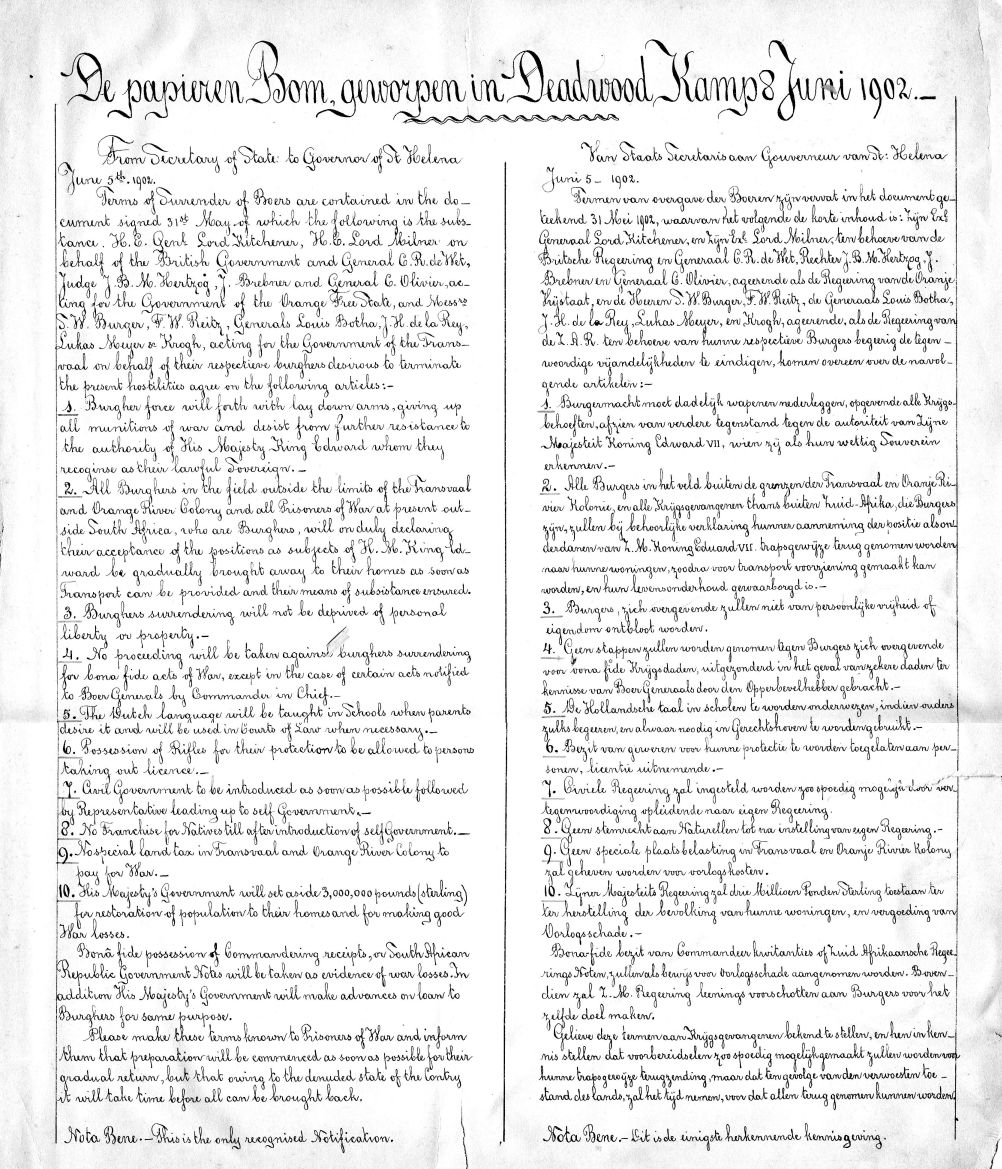 De papieren Bom, geworpen in Deadwood Kamp 8 Juni 1902.—
From Secretary of State: to Governor of St Helena
June 5th. 1902.
Terms of Surrender of Boers are contained in the do-
cument signed 31st May, of which the following is the subs-
tance. H.E. Genl Lord Kitchener, H.E. Lord Milner on
behalf of the British Government and General C. R. de Wet,
Judge J. B. M. Hertzog. J. Brebner and General C. Olivier, ac-
ting for the Government of the Orange Free State, and Messrs
S. W. Burger, F. W. Reitz, Generals Louis Botha, J. H. de la Rey,
Lukas Meyer & Krogh, acting for the Government of the Trans-
vaal on behalf of their respective burghers desirous to terminate
the present hostilities agree on the following articles:-
1. Burgher force will forth with lay down arms, giving up
all munitions of war and desist from further resistance to
the authority of His Majesty King Edward whom they
recoginse as their lawful Sovereign.—
2. All Burghers in the field outside the limits of the Transvaal
and Orange River Colony and all Prisoners of War at present out-
side South Africa, who are Burghers, will on duly declaring
their acceptance of the positions as subjects of H. M. King Ed-
ward be gradually brought away to their homes as soon as
Transport can be provided and their means of subsistance ensured.
3. Burghers surrendering will not be deprived of personal
liberty or property.—
4. No proceeding will be taken against burghers surrendering
for bona fide acts of War, except in the case of certain acts notified
to Boer Generals by Commander in Chief.—
5. The Dutch language will be taught in Schools when parents
desire it and will be used in Courts of Law when necessary.—
6. Possession of Rifles for their protection to be allowed to persons
taking out licence.—
7. Civil Government to be introduced as soon as possible followed
by Representative leading up to self Government.—
8. No Franchise for Natives till after introduction of self Government.—
9. No special land tax in Transvaal and Orange River Colony to
pay for War.—
10. His Majesty's Government will set aside 3,000,000 pounds (sterling)
for restoration of population to their homes and for making good
War losses.
Bonâ fide possession of Commandering receipts, or South African
Republic Government Notes will be taken as evidence of war losses. In
addition His Majesty's Government will make advances on loan to
Burghers for same purpose.
Please make these terms known to Prisoners of War and inform
them that preparation will be commenced as soon as possible for their
gradual return, but that owing to the denuded state of the Contry
it will take time before all can be brought back.
Nota Bene.— This is the only recognised Notification.
Van Staats Secretaris aan Gouverneur van St: Helena
Juni 5 — 1902.
Termen van overgave der Boeren zijn vervat in het document ge-
teekend 31 Mei 1902, waarvan het volgende de korte inhoud is: Zijn Exl
Generaal Lord Kitchener, en Zijn Exl. Lord Milner, ten behoeve van de
Britsche Regeering en Generaal C. R. de Wet, Rechter J. B. M. Hertzog, J.
Brebner en Generaal C. Olivier, ageerende als de Regeering van de Oranje
Vrijstaat, en de Heeren S. W. Burger, F. W. Reitz, de Generaals Louis Botha,
J. H. de la Rey, Lukas Meyer, en Krogh, ageerende, als de Regeering van
de Z. A. R. ten behoeve van hunne respectieve Burgers begeerig de tegen-
woordige vijandelijkheden te eindigen, komen overeen over de navol-
gende artikelen:—
1. Burgermacht moet dadelijk wapenen nederleggen, opgevende alle Krijgs-
behoeften, afzien van verdere tegenstand tegen de autoriteit van Zijne
Majesteit Koning Edward VII, wien zij als hun wettig Souverein
erkennen.—
2. Alle Burgers in het veld buiten de grenzen der Transvaal en Oranje Ri-
vier Kolonie, en alle Krijgsgevangenen thans buiten Zuid-Afrika, die Burgers
zijn, zullen bij behoorlijke verklaring hunner aanneming der positie als on-
derdanen van Z. M. Koning Eduard VII. trapsgewijze terug genomen worden
naar hunne woningen, zoodra voor transport voorziening gemaakt kan
worden, en hun levensonderhoud gewaarborgd is.—
3. Burgers, zich overgevende zullen niet van persoonlijke vrijheid of
eigendom ontbloot worden.
4. Geen stappen zullen worden genomen tegen Burgers zich overgevende
voor bona fide Krijgsdaden, uitgezonderd in het geval van zekere daden ter
kennisse van Boer Generaals door den Opperbevelhebber gebracht.—
5. De Hollandsche taal in scholen te worden onderwezen, indien ouders
zulks begeeren, en alwaar noodig in Gerechtshoven te worden gebruikt.—
6. Bezit van geweren voor hunne protectie te worden toegelaten aan per-
sonen, licentie uitnemende.—
7. Civiele Regeering zal ingesteld worden zoo spoedig mogelijk door ver-
tegenwoordiging opleidende naar eigen Regeering.
8. Geen stemrecht aan Naturellen tot na instelling van eigen Regeering.—
9. Geen speciale plaatsbelasting in Transvaal en Oranje Rivier Kolony
zal geheven worden voor oorlogskosten.
10. Zijner Majesteits Regeering zal drie Millioen Ponden Sterling toestaan ter
ter herstelling der bevolking van hunne woningen, en vergoeding van
Oorlogsschade.—
Bona-fide bezit van Commandeer kwitanties of Zuid Afrikaansche Regee-
rings Noten, zullen als bewijs voor Oorlogsschade aangenomen worden. Boven-
dien zal Z. M. Regeering leenings voorschotten aan Burgers voor het
zelfde doel maken.
Gelieve deze termen aan Krijgsgevangenen bekend te stellen, en hen in ken-
nis stellen dat voorbereidselen zoo spoedig mogelijk gemaakt zullen worden voor
hunne trapsgewijze terugzending, maar dat ten gevolge van den verwoesten toe-
stand des lands, zal het tijd nemen, voor dat allen terug genomen kunnen worden.
Nota Bene.— Dit is de eenigste herkennende kennisgeving.